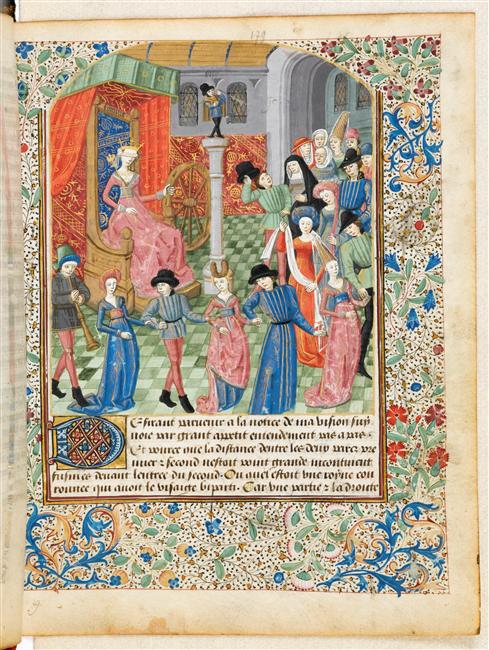 179
Esirant paruenir a la notice de ma vision sup
noie par grant appetit entendement pas a pas
Et pource que la distance dentre les deux parcz pre
mier z second nestoit point grande incontinent
fusmes deuant lentree du second. Ou quel estoit vne royne cou
ronnee qui auoit le visaige biparti. Car vne partie z la droicte